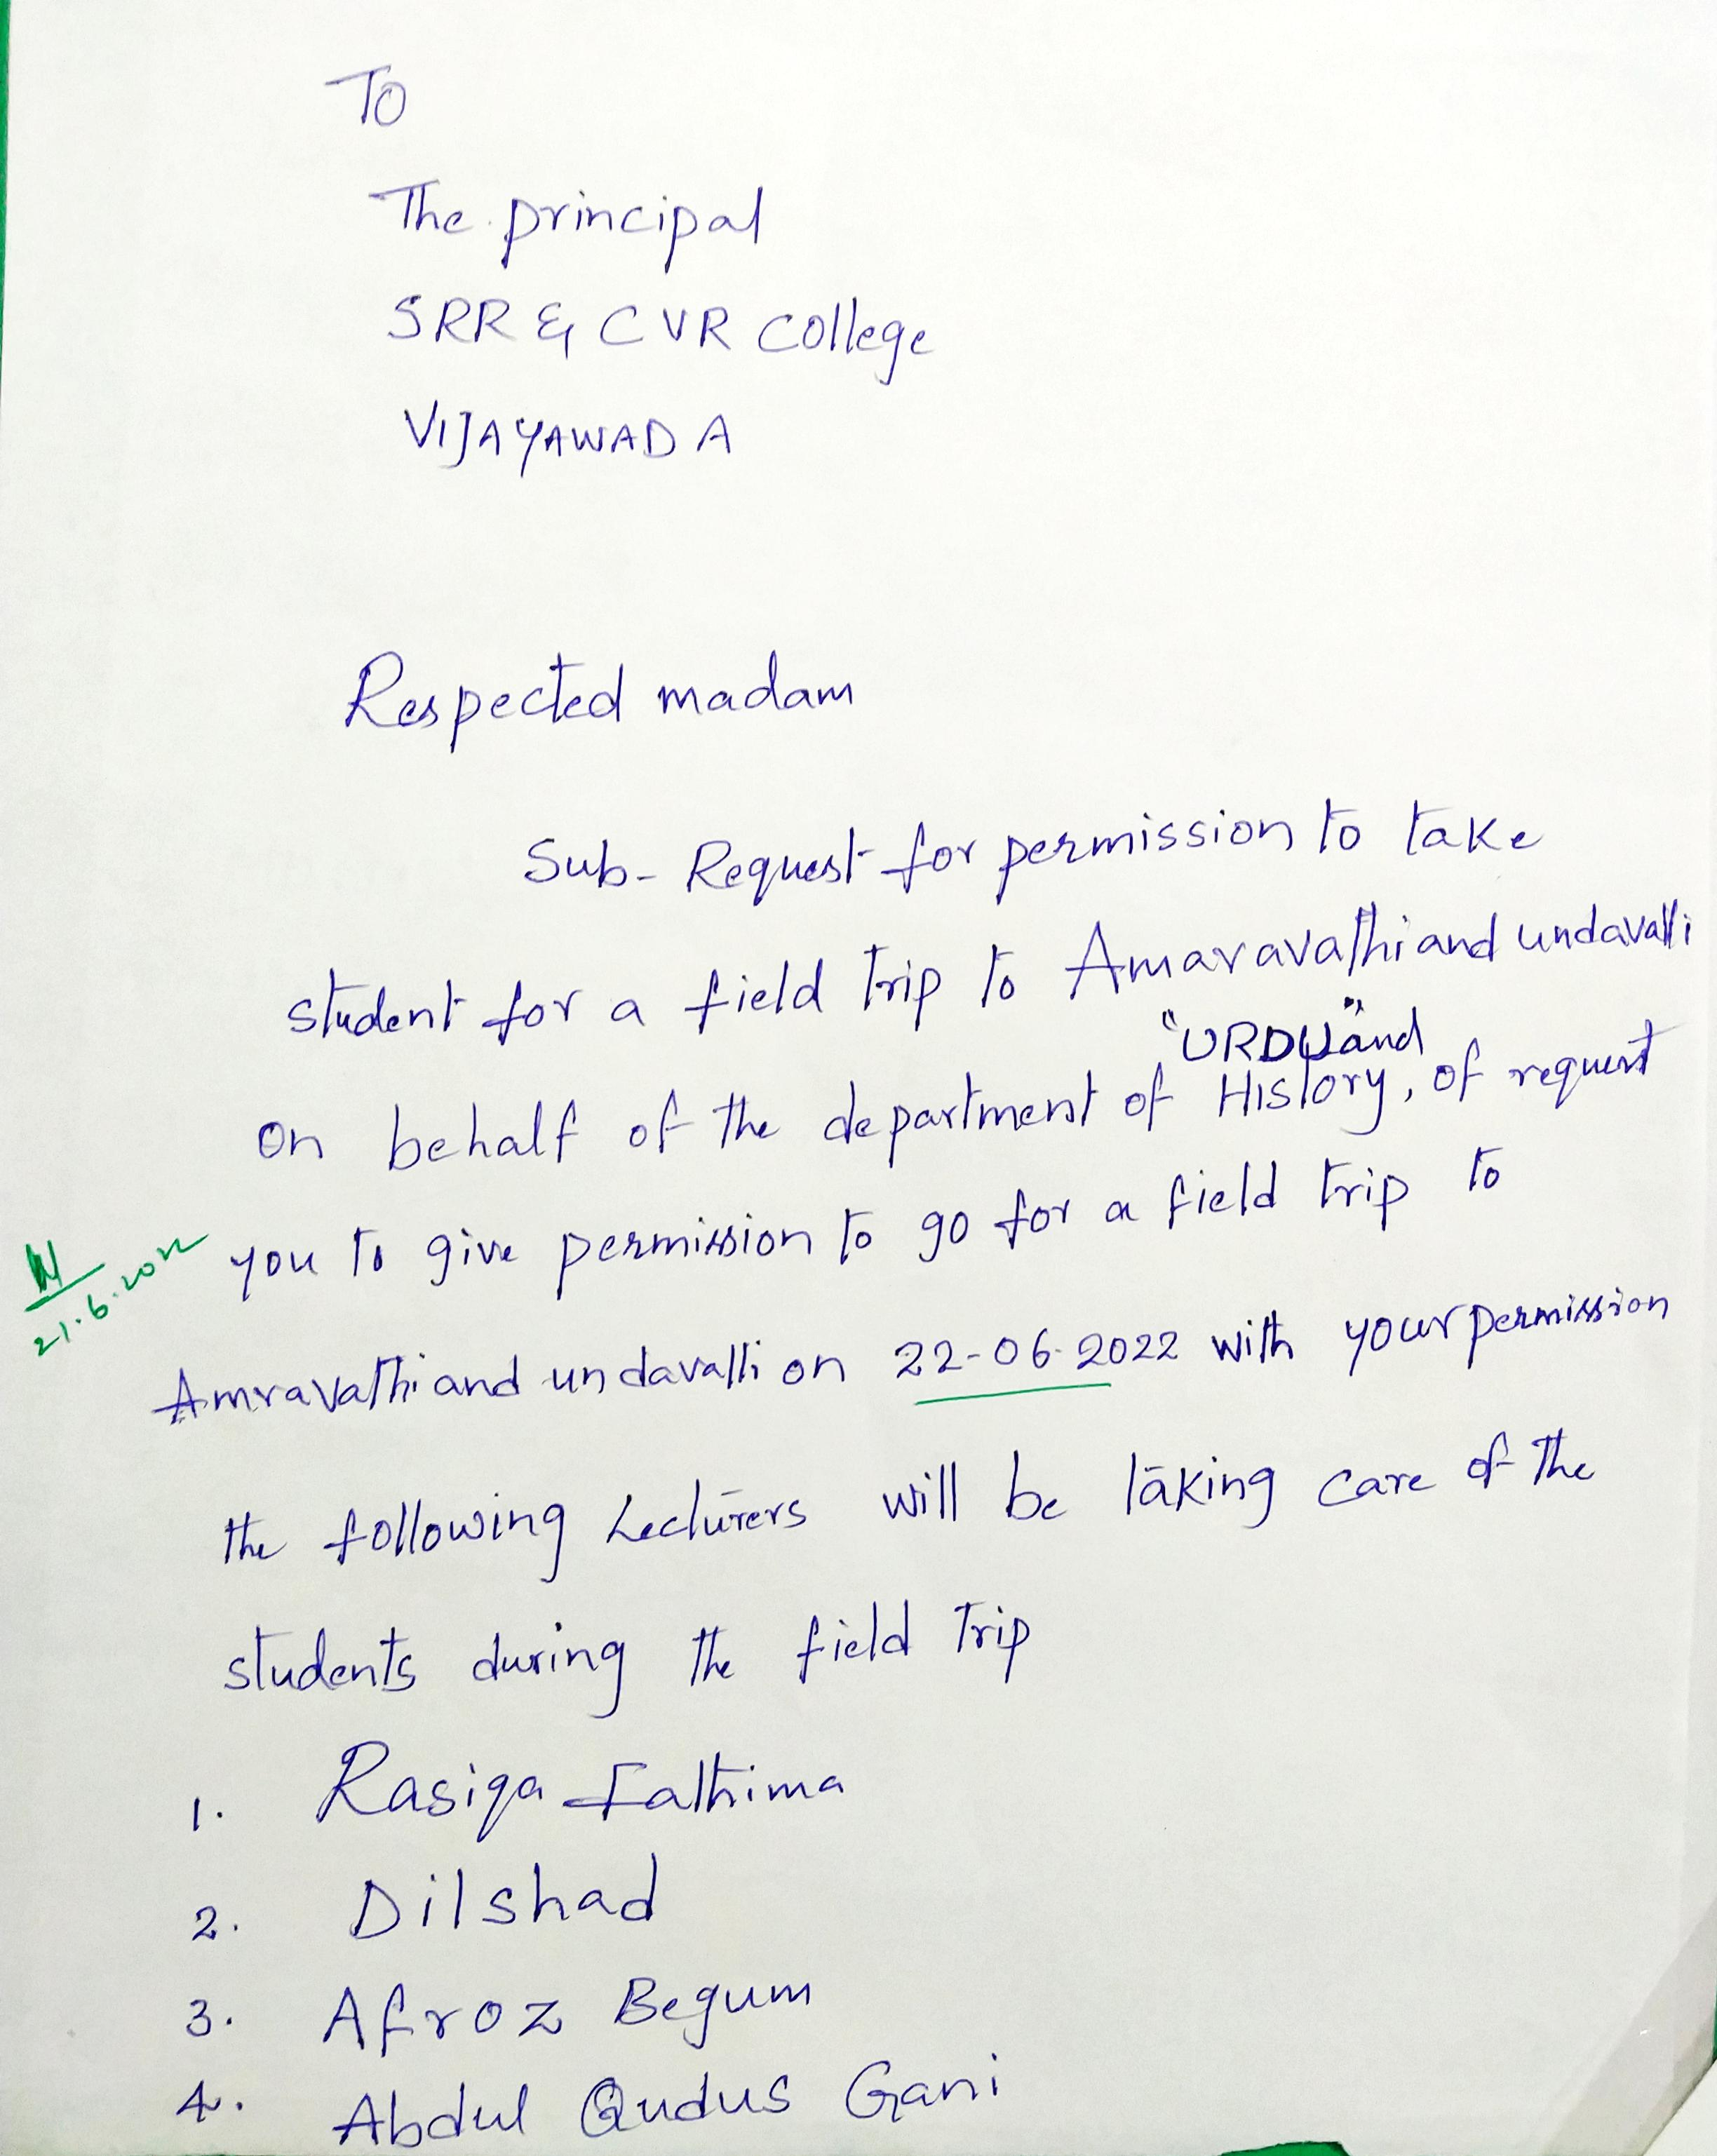 To
The principal
SRR & CVR College
VIJAYAWADA
Respected madam
Sub- Request for permission to take
student for a field trip to Amaravathi and undavalli
"URDU" and
on behalf of the department of History, of request
you to give permission to go for a field trip to
21.6.2022
Amravathi and undavalli on 22-06-2022 with your permission
the following Lecturers will be taking care of the
students during the field Trip
1. Rasiqa Fathima
2. Dilshad
3. Afroz Begum
4. Abdul Qudus Gani